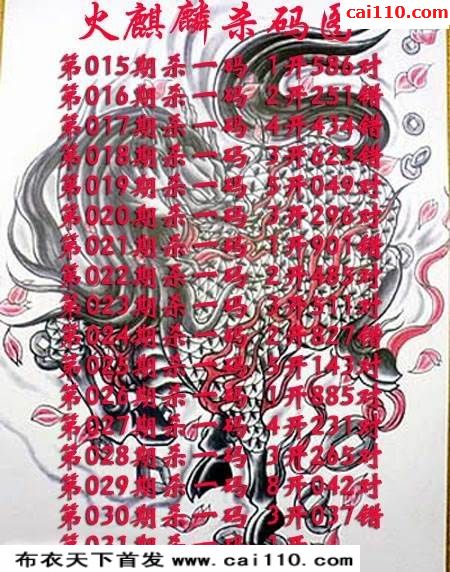 cai110.com
火麒麟杀码
第015期杀一码 1开586对
第016期杀一码 2开251错
第017期杀一码 4开434错
第018期杀一码 3开623错
第019期杀一码 5开049对
第020期杀一码 3开296对
第021期杀一码 1开901错
第022期杀一码 2开485对
第023期杀一码 3开511对
第024期杀一码 2开827错
第025期杀一码 5开143对
第026期杀一码 1开885对
第027期杀一码 4开231对
第028期杀一码 3开265对
第029期杀一码 8开042对
第030期杀一码 3开037错
第031期杀一码
布衣天下首发 www.cai110.com